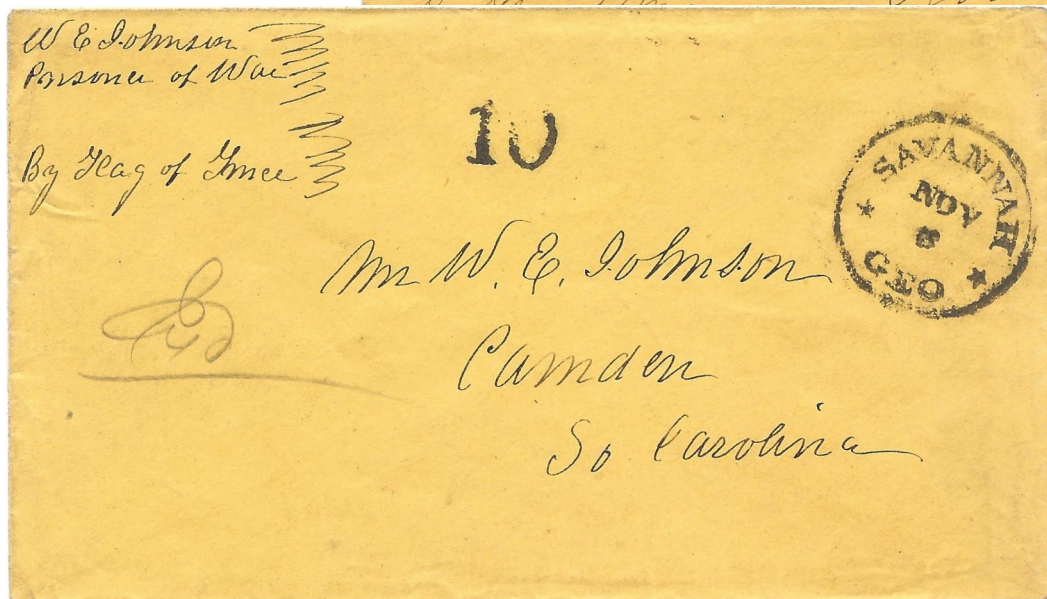 W E Johnson
Prisoner of War
By Flag of Truce
10
SAVANNAH
NOV
8
GEO
Mr W. E. Johnson
Camden
So Carolina